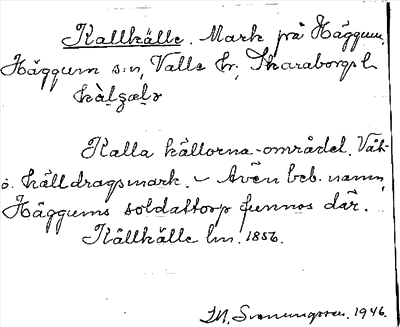 Kallkälle. Mark på Häggum,
Häggum s:n, Valle hr, Skaraborgs l.
Kalla källorna-området. Våt-
o. källdragsmark. – Även beb. namn,
Häggums soldattorp funnos där.
Källkälle lm. 1856.
1946.